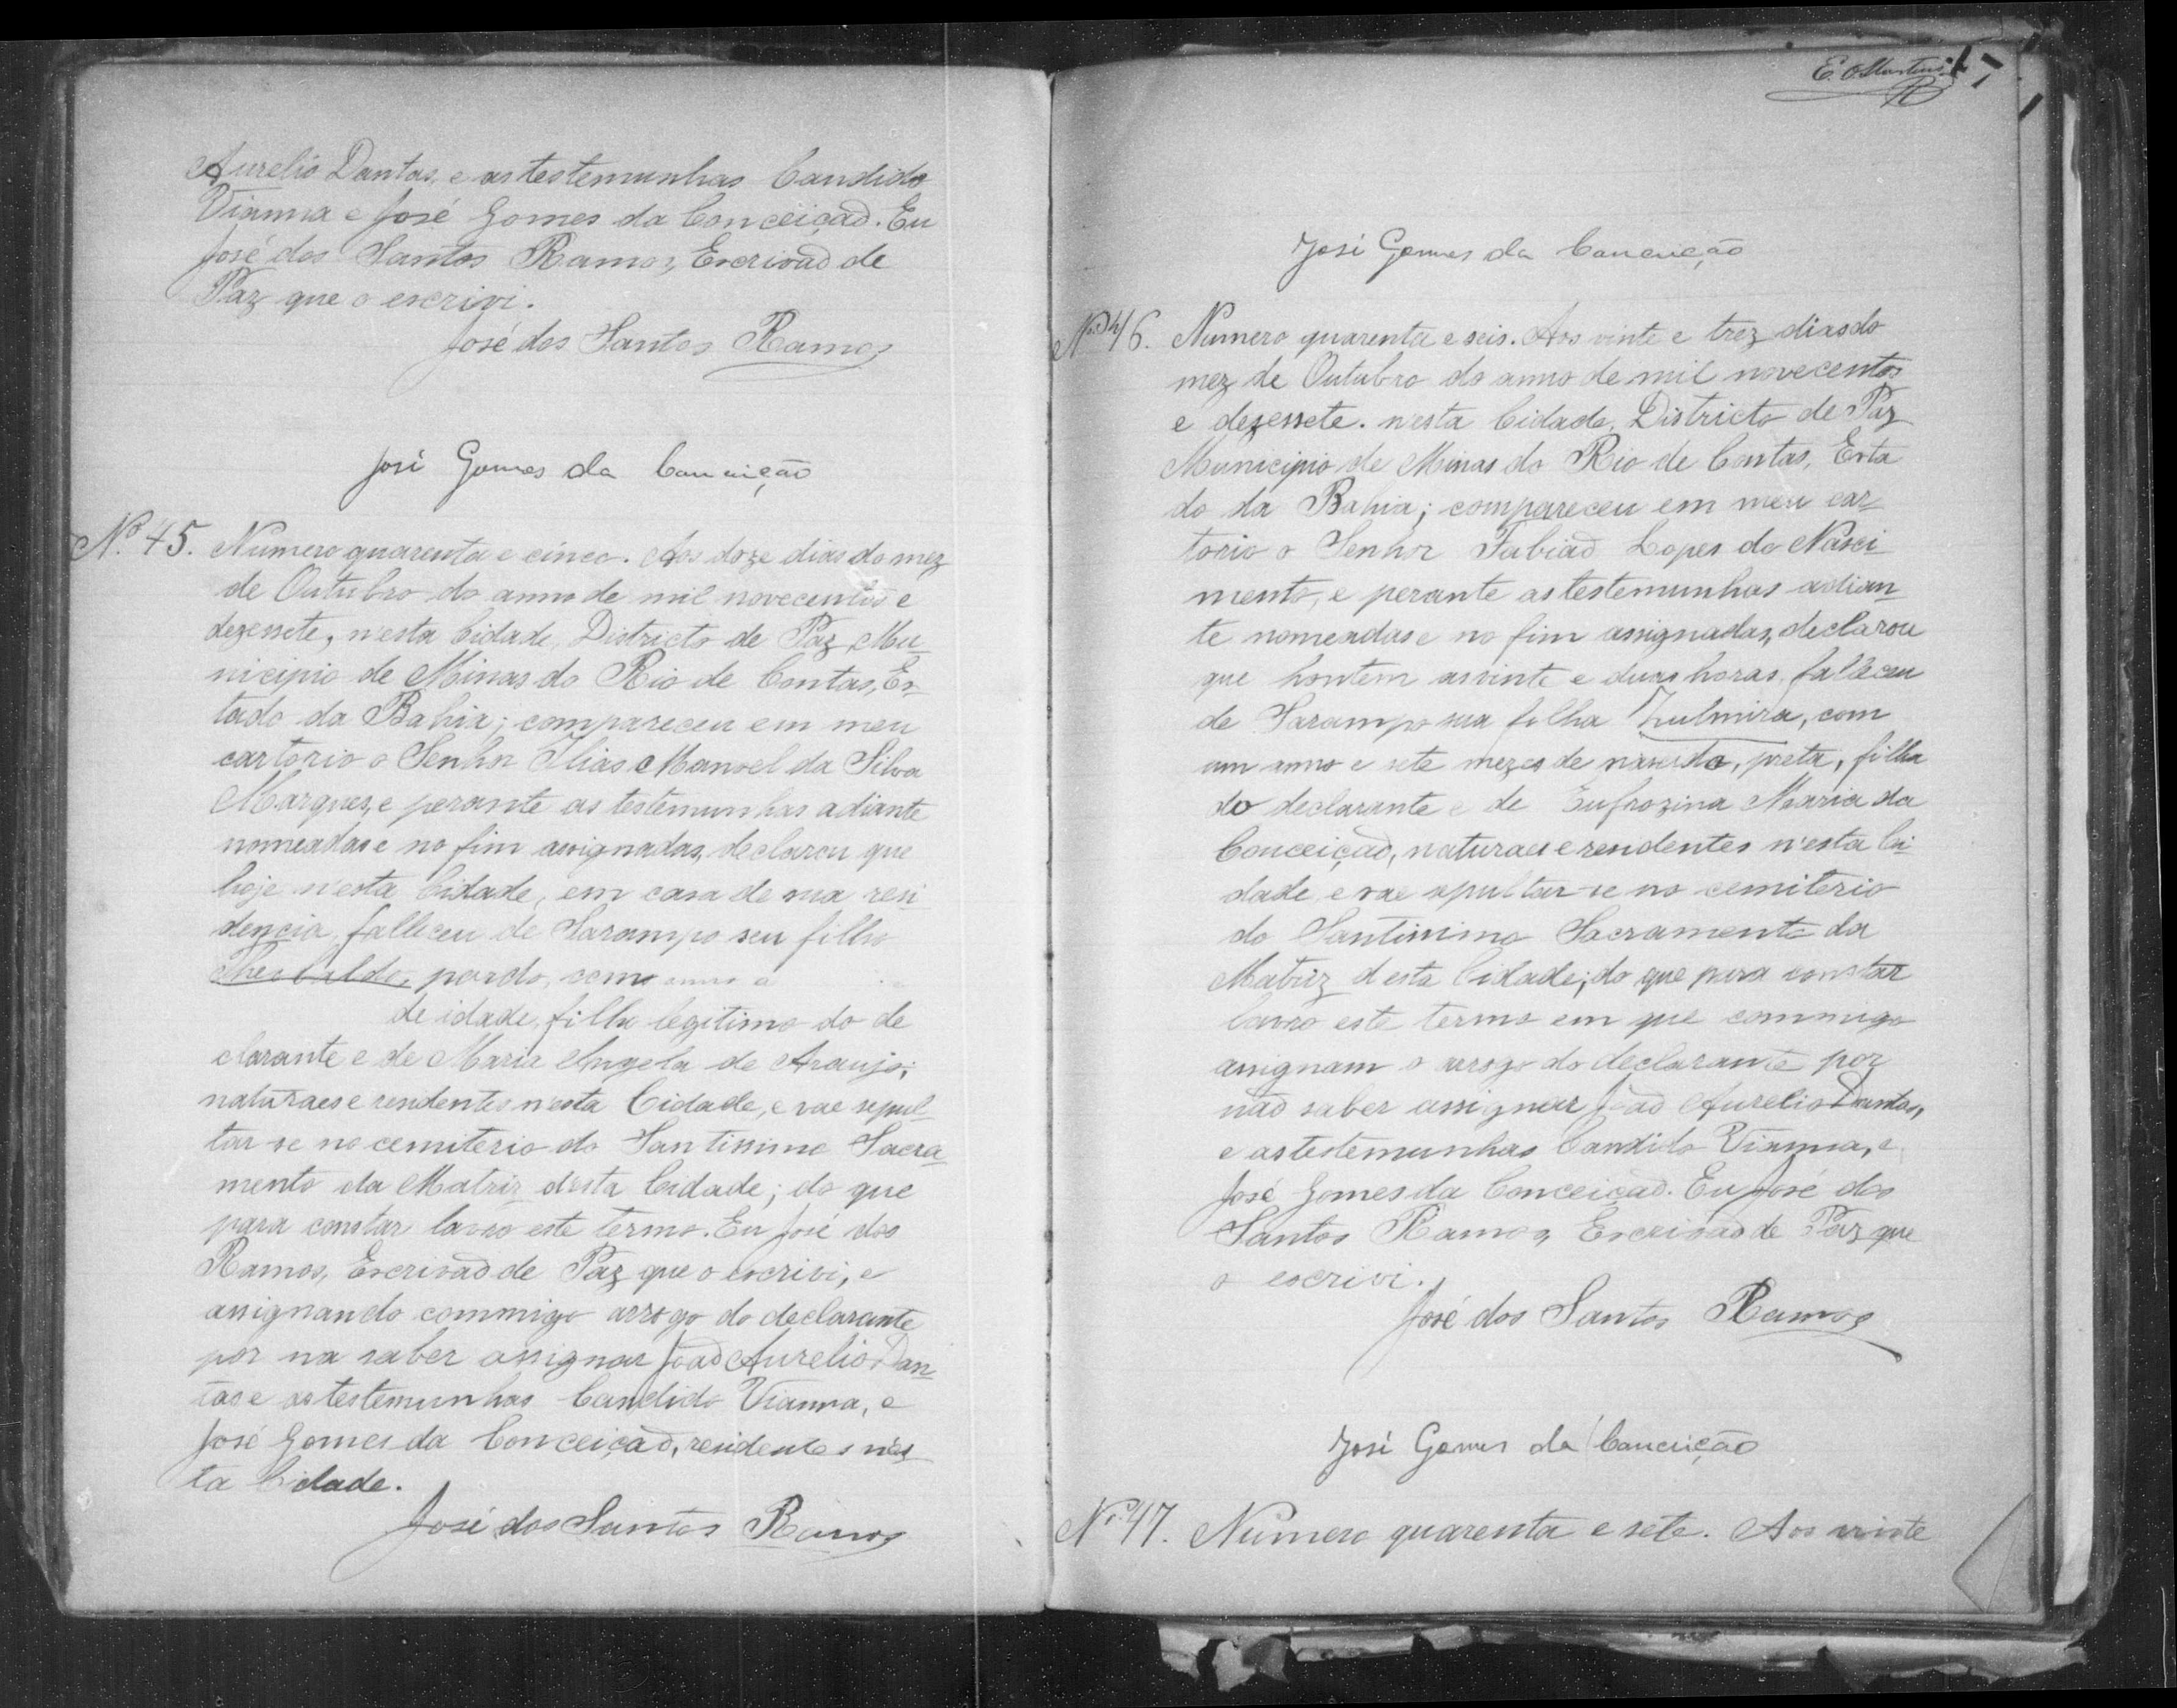 Aurelio Dantas, e as testemunhas Candido
Vianna e José Gomes da Conceição. Eu
José dos Santos Ramos, Escrivão de
Paz que o escrivi.
José dos Santos Ramos
José Gomes da Conceição
Nº 45. Numero quarenta e cinco. Aos doze dias do mez
de Outubro do anno de mil novecentos e
dezessete, n'esta Cidade, Districto de Paz, Mu-
nicipio de Minas do Rio de Contas, Es-
tado da Bahia; compareceu em meu
cartorio o Senhor Elias Manoel da Silva
Marques, e perante as testemunhas adiante
nomeadas e no fim assignadas, declarou que
hoje n'esta Cidade, em casa de sua resi-
dencia, falleceu de Sarampo seu filho
Theobaldo, pardo, com
de idade, filho legitimo do de
clarante e de Maria Angela de Araujo;
naturaes e residentes n'esta Cidade, e vae sepul-
tar-se no cemiterio do Santissimo Sacra-
mento da Matriz desta Cidade; do que
para constar lavro este termo. Eu José dos
Ramos, Escrivão de Paz que o escrivi, e
assignando commigo arrogo do declarante
por na saber assignar João Aurelio Dan-
tas e as testemunhas Candido Vianna, e
José Gomes da Conceição, residentes n'es-
ta Cidade.
José dos Santos Ramos
E. Martins
17
José Gomes da Conceição
Nº 46. Numero quarenta e seis. Aos vinte e trez dias do
mez de Outubro do anno de mil novecentos
e dezessete. n'esta Cidade, Districto de Paz
Municipio de Minas do Rio de Contas, Esta
do da Bahia; compareceu em meu car-
torio o Senhor Fabião Lopes do Nasci-
mento, e perante as testemunhas adian-
te nomeadas e no fim assignadas, declarou
que hontem as vinte e duas horas, falleceu
de Sarampo sua filha Zulmira, com
um anno e sete mezes de nascida, preta, filha
do declarante e de Eufrozina Maria da
Conceição, naturaes e residentes n'esta Ci-
dade, e vae sepultar-se no cemiterio
do Santissimo Sacramento da
Matriz d'esta Cidade; do que para constar
lavro este termo em que commigo
assignam o arrogo do declarante por
não saber assignar João Aurelio Dantas,
e as testemunhas Candido Vianna, e
José Gomes da Conceição. Eu José dos
Santos Ramos, Escrivão de Paz que
o escrivi.
José dos Santos Ramos
José Gomes da Conceição
Nº 47. Numero quarenta e sete. Aos vinte